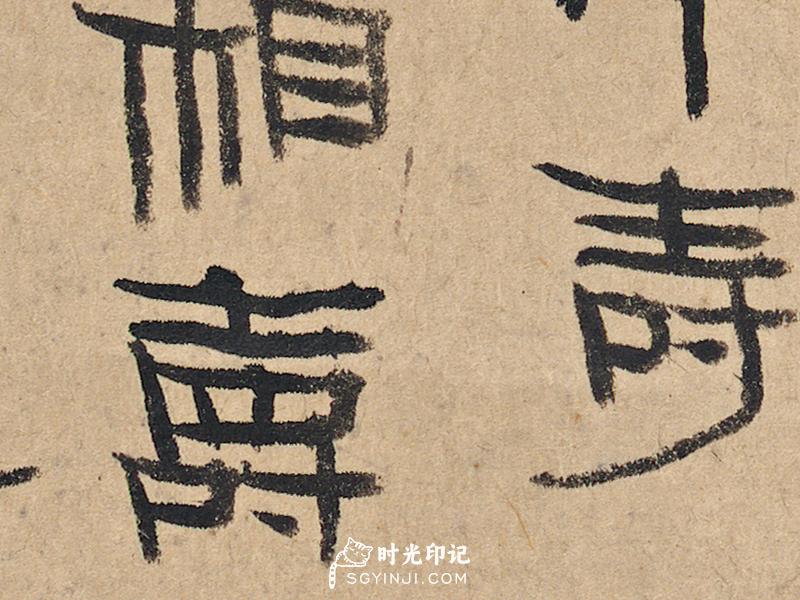 壽
相壽
时光印记
SGYINJI.COM